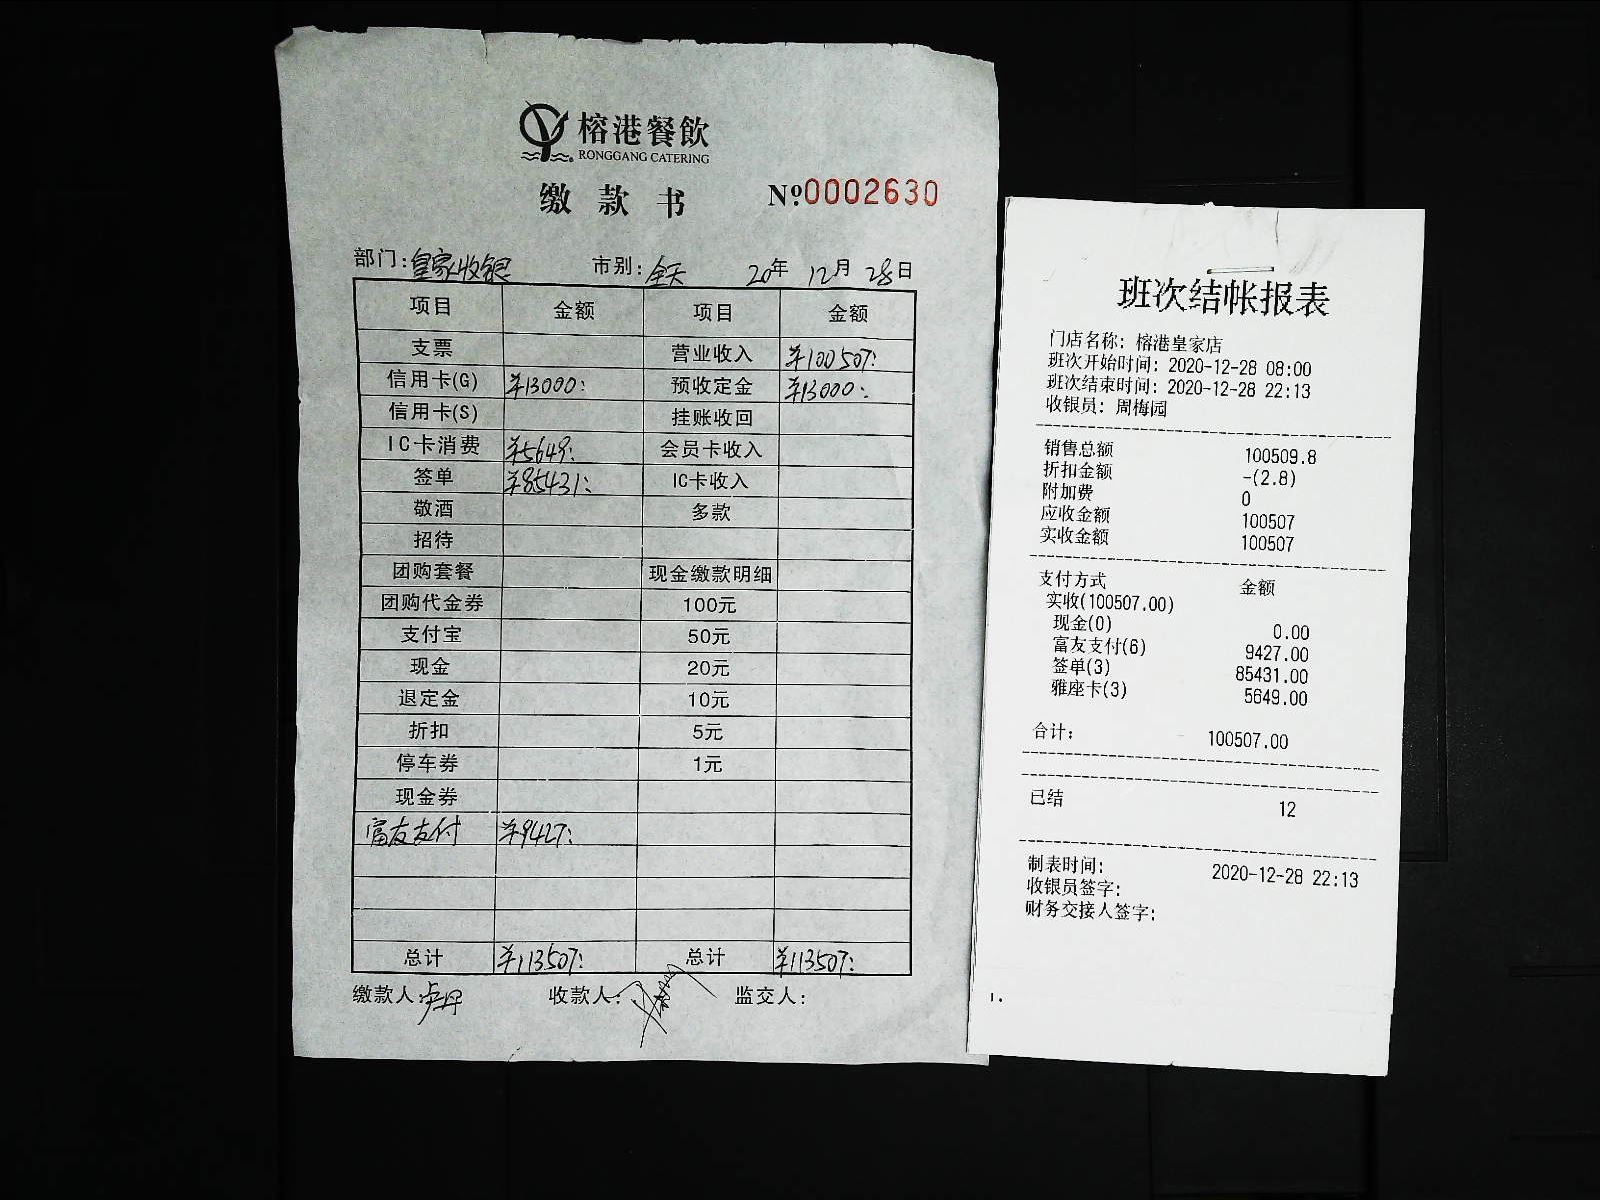 榕港餐飲
RONGGANG CATERING
缴款书 №0002630
部门:皇家收银 市别:全天 20年12月28日
项目 金额 项目 金额
支票 营业收入 ¥100507:
信用卡(G) ¥13000: 预收定金 ¥13000:
信用卡(S) 挂账收回
IC卡消费 ¥5649: 会员卡收入
签单 ¥85431: IC卡收入
敬酒 多款
招待
团购套餐 现金缴款明细
团购代金券 100元
支付宝 50元
现金 20元
退定金 10元
折扣 5元
停车券 1元
现金券
富友支付 ¥9427:
总计 ¥113507: 总计 ¥113507:
缴款人: 收款人: 监交人:
班次结帐报表
门店名称: 榕港皇家店
班次开始时间: 2020-12-28 08:00
班次结束时间: 2020-12-28 22:13
收银员: 周梅园
销售总额 100509.8
折扣金额 -(2.8)
附加费 0
应收金额 100507
实收金额 100507
支付方式 金额
实收(100507.00)
现金(0) 0.00
富友支付(6) 9427.00
签单(3) 85431.00
雅座卡(3) 5649.00
合计: 100507.00
已结 12
制表时间: 2020-12-28 22:13
收银员签字:
财务交接人签字:
1.